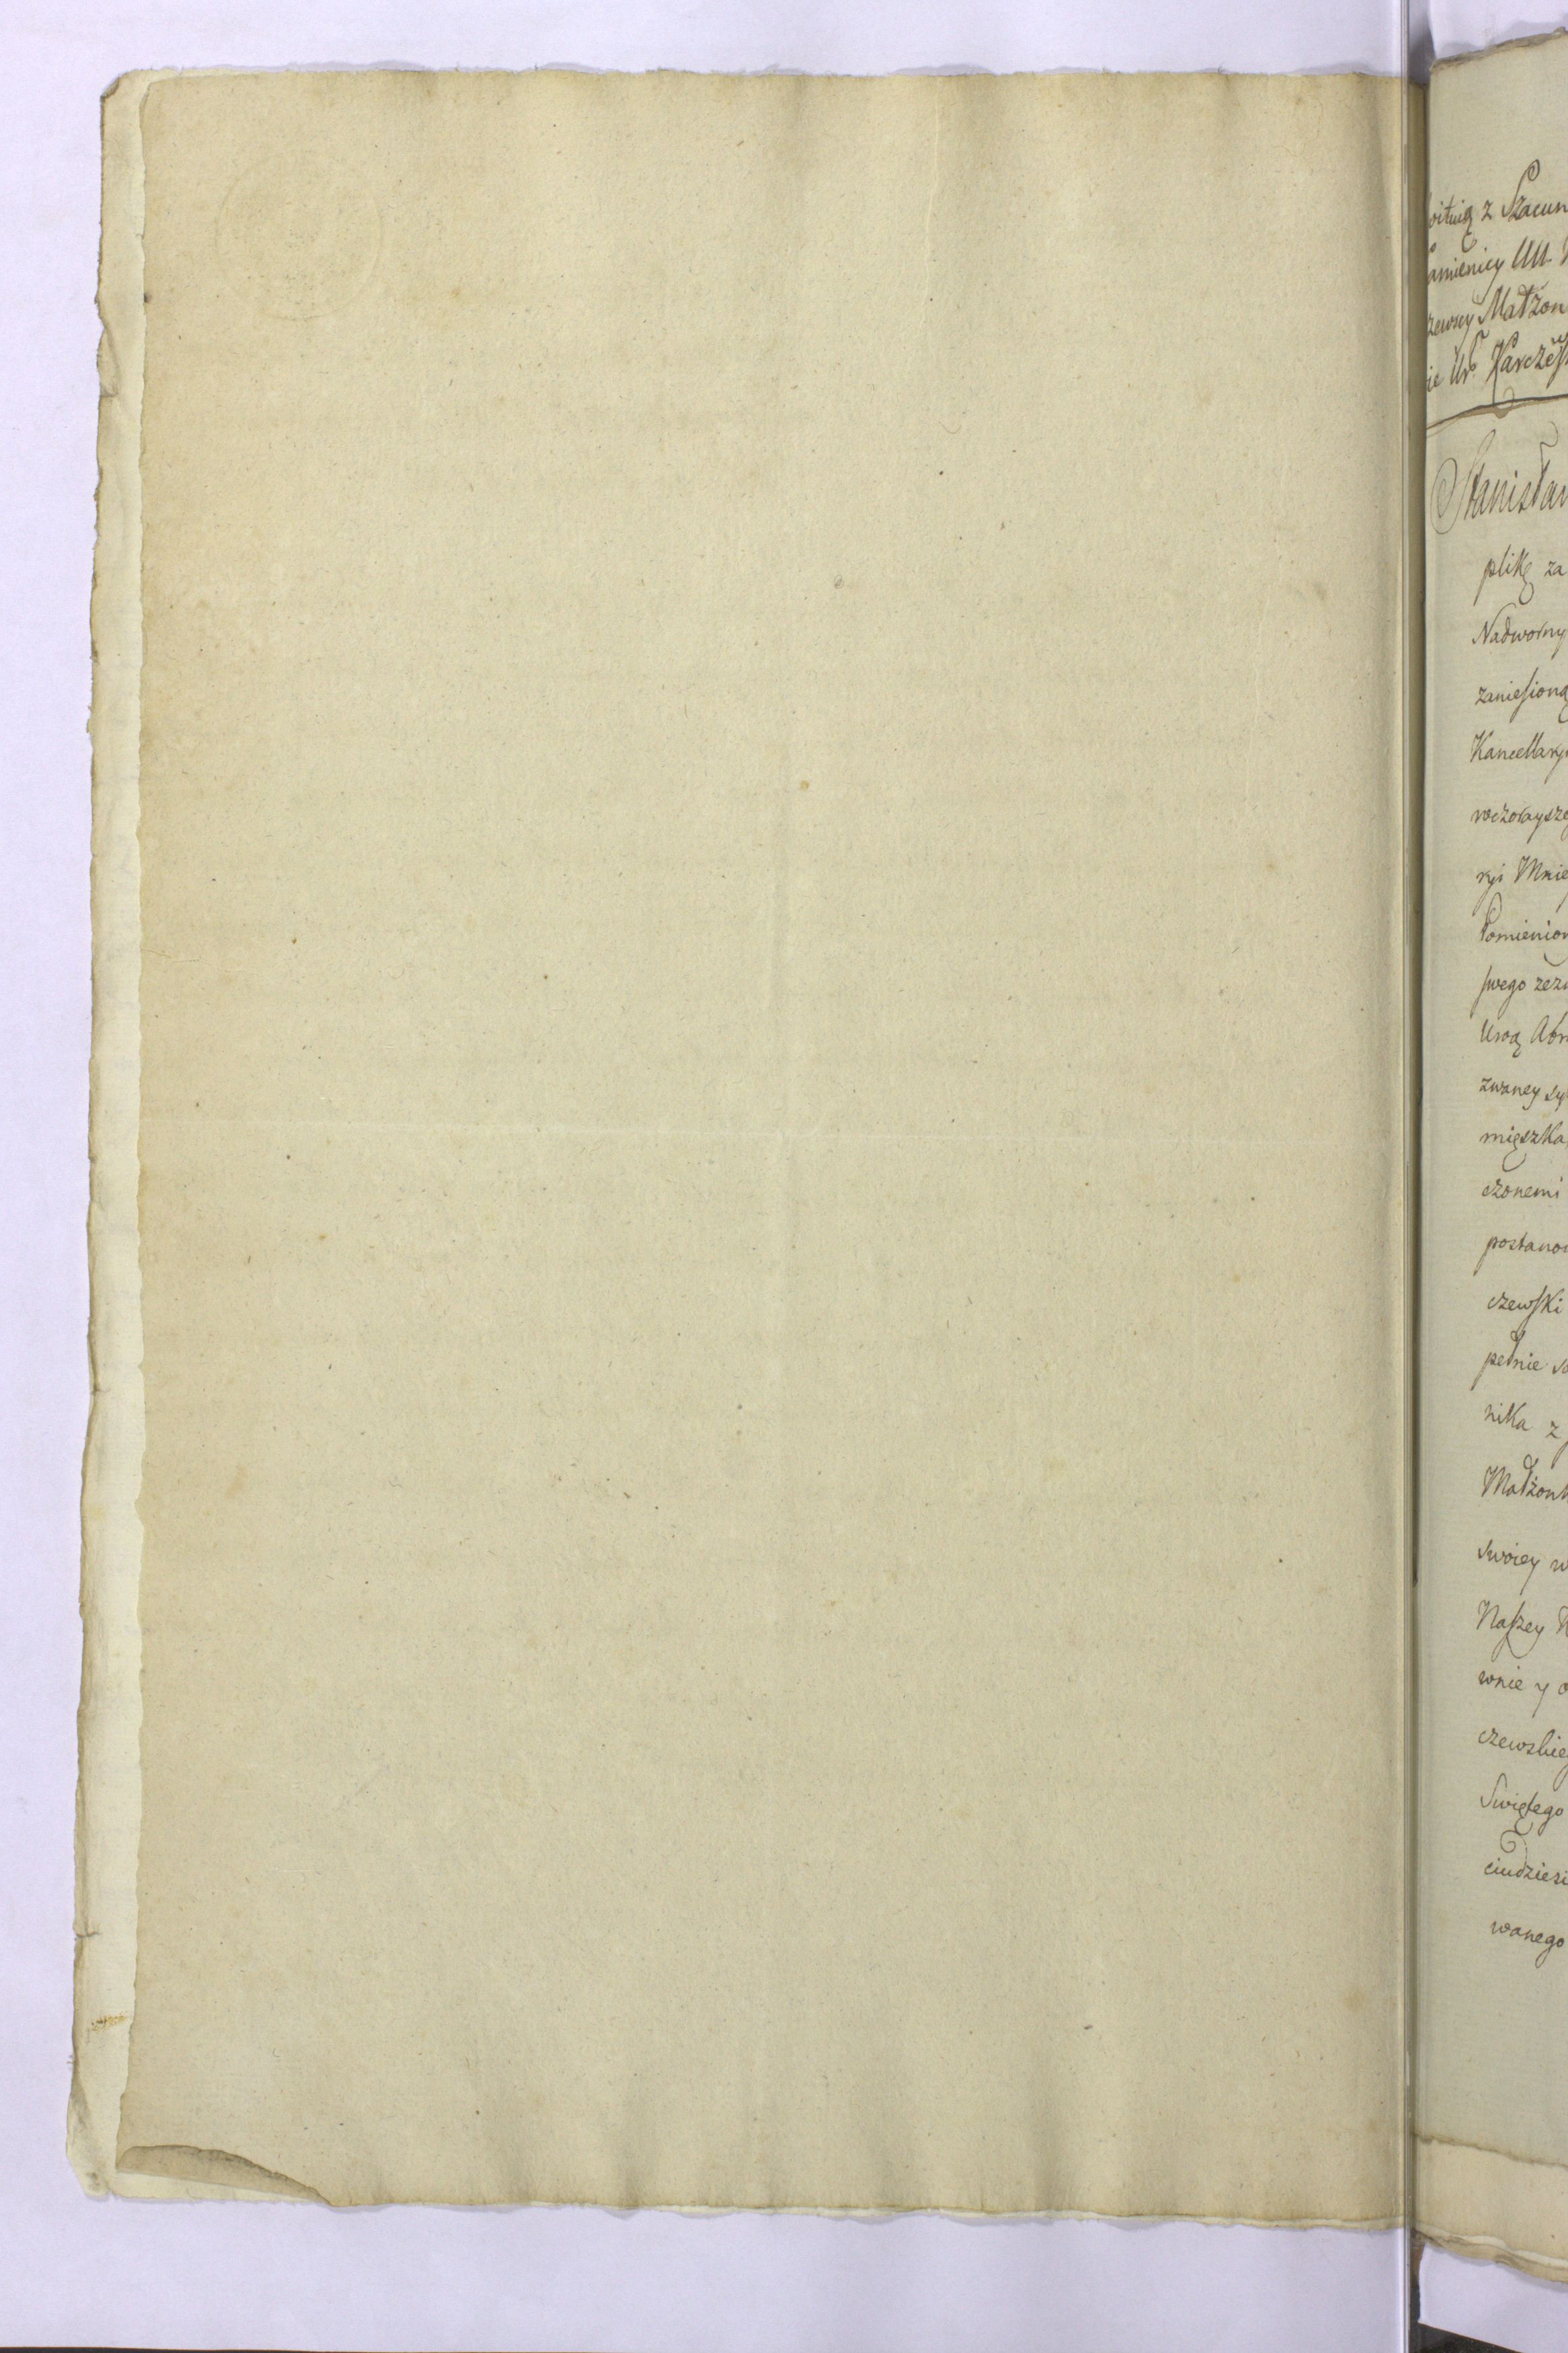 z Szacun
amienicy UU.
zewscy Małżon
ie Ur.
Stanisław
plikę za
Nadworny
zaniesioną
Kancellaryi
wczorayszeg
ryi Mnie
Pomienion
swego zezn
zwaney
mięszka
czonemi
postanow
czewski
pełnie
nika z
Małżonk
swoiey w
Naszey
wnie y o
czewskieg
Swiętego
ciudziesi
wanego